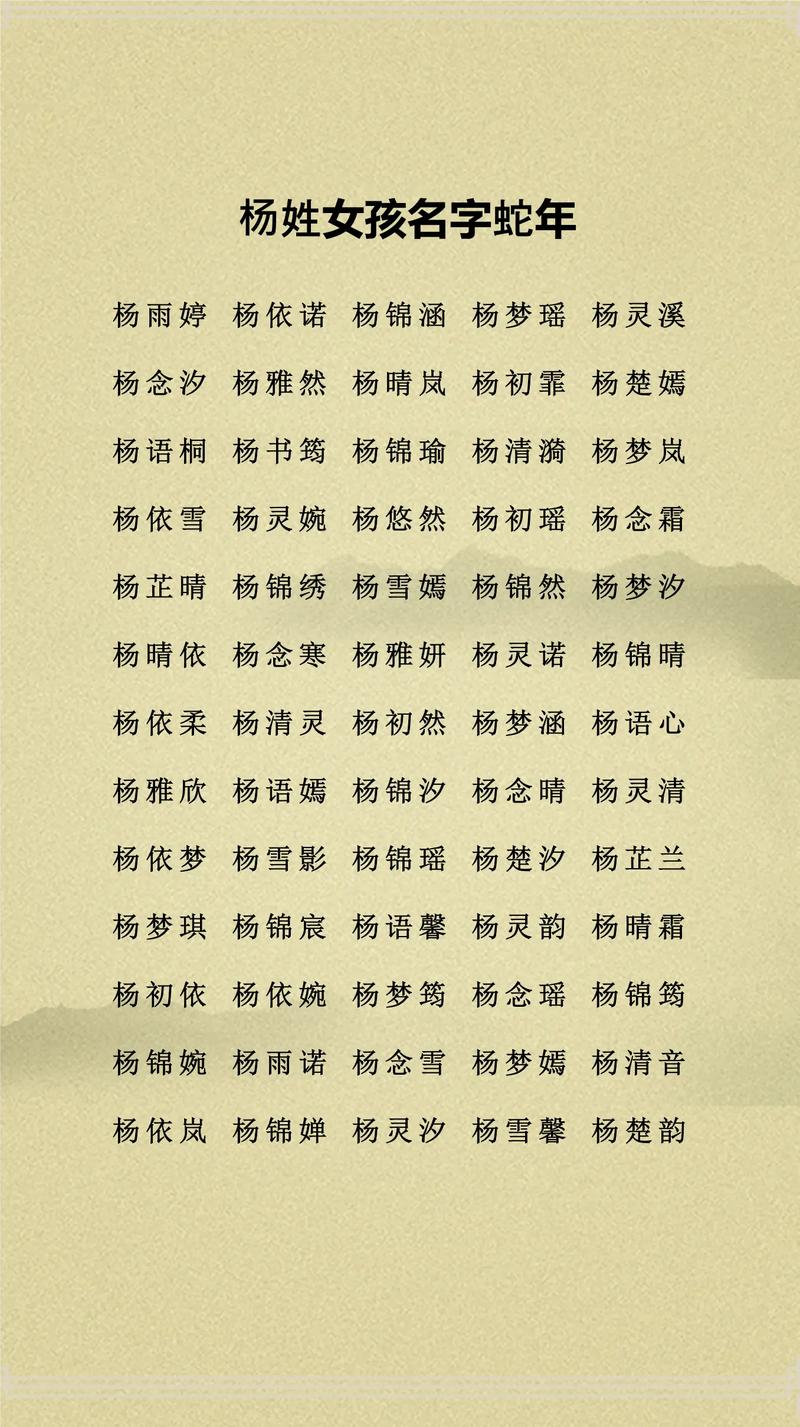 杨姓女孩名字蛇年
杨雨婷 杨依诺 杨锦涵 杨梦瑶 杨灵溪
杨念汐 杨雅然 杨晴岚 杨初霏 杨楚嫣
杨语桐 杨书筠 杨锦瑜 杨清漪 杨梦岚
杨依雪 杨灵婉 杨悠然 杨初瑶 杨念霜
杨芷晴 杨锦绣 杨雪嫣 杨锦然 杨梦汐
杨晴依 杨念寒 杨雅妍 杨灵诺 杨锦晴
杨依柔 杨清灵 杨初然 杨梦涵 杨语心
杨雅欣 杨语嫣 杨锦汐 杨念晴 杨灵清
杨依梦 杨雪影 杨锦瑶 杨楚汐 杨芷兰
杨梦琪 杨锦宸 杨语馨 杨灵韵 杨晴霜
杨初依 杨依婉 杨梦筠 杨念瑶 杨锦筠
杨锦婉 杨雨诺 杨念雪 杨梦嫣 杨清音
杨依岚 杨锦婵 杨灵汐 杨雪馨 杨楚韵